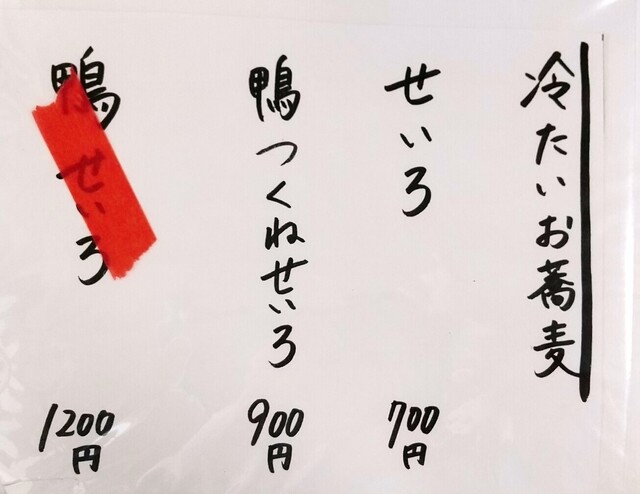 冷たいお蕎麦
せいろ
700円
鴨つくねせいろ
900円
鴨せいろ
1200円